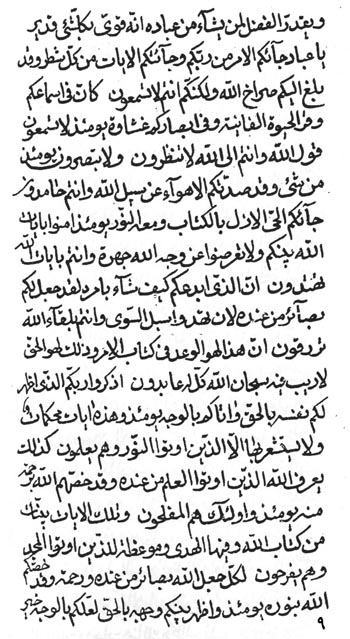 ويقدر الفضل لمن يشآء من عباده انه قوى بكلشئ قدير
يا عباد جآئكم الامر من ربكم وجآئتكم الايات من كل منظر وقد
بلغ اليكم صراخ الله ولكنكم انتم لاتسمعون كان فى اسماعكم
وقر الحيوة الفانية وفى ابصاركم غشاوة يومئذ لاتسمعون
قول الله وانتم الى الله لاتنظرون ولا تبصرون يومئذ
من شئ وقد صدتكم الاهوآء عن سبيل الله وانتم خامدون
جآئكم الحى الازل بالكتاب ومعه النور يومئذ امنوا بايات
الله بينكم ولا تعرضوا عن وجه الله جهرة وانتم بايات الله
تهتدون ان الذى ابدعكم كيف شآء بامره لقد جعل لكم
بصآئر من عنده لان تهتدوا سبل السوى وانتم بلقآء الله
ترزقون ان هذا لهو الوعد فى كتاب الامر وذلك لهو الحق
لاريب فيه سبحان الله كل له عابدون اذكروا ربكم الذى اظهر
لكم نفسه بالحق واتاكم بالوجه يومئذ وهذه ايات محكمات
ولا يستشعر بها الا الذين اوتوا النور وهم يعلمون كذلك
يعرف الله الذين اوتوا العلم من عنده وقد خصهم الله برحمة
منه يومئذ واولئك هم المفلحون وتلك الايات بينات
من كتاب الله وفيها الهدى وموعظة للذين اوتوا المجد
وهم يفرحون لكل جعل الله بصائر من عنده ورحمة وقد خصكم
الله بنوره يومئذ واظهر بينكم وجهه بالحق لعلكم بالوجه
٩